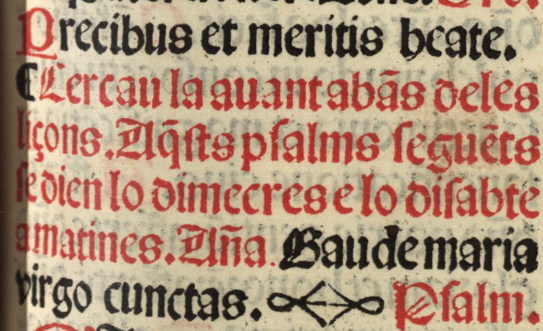 Precibus et meritis beate.
¶Cercau la auant abãs deles
liçons. Aq̃sts psalms seguẽts
se dien lo dimecres e lo disabte
a matines. Aña. Gaude maria
virgo cunctas. Psalm.